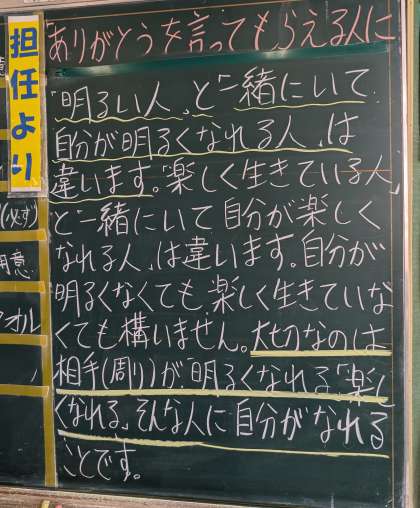 担任より
ありがとうを言ってもらえる人に
「明るい人」と「一緒にいて
自分が明るくなれる人」は
違います。「楽しく生きている人」
と「一緒にいて自分が楽しく
なれる人」は違います。自分が
明るくなくても、楽しく生きていな
くても構いません。大切なのは
相手(周り)が「明るくなれる」「楽し
くなれる」、そんな人に自分がなれる
ことです。
(必ず)
用意
オル